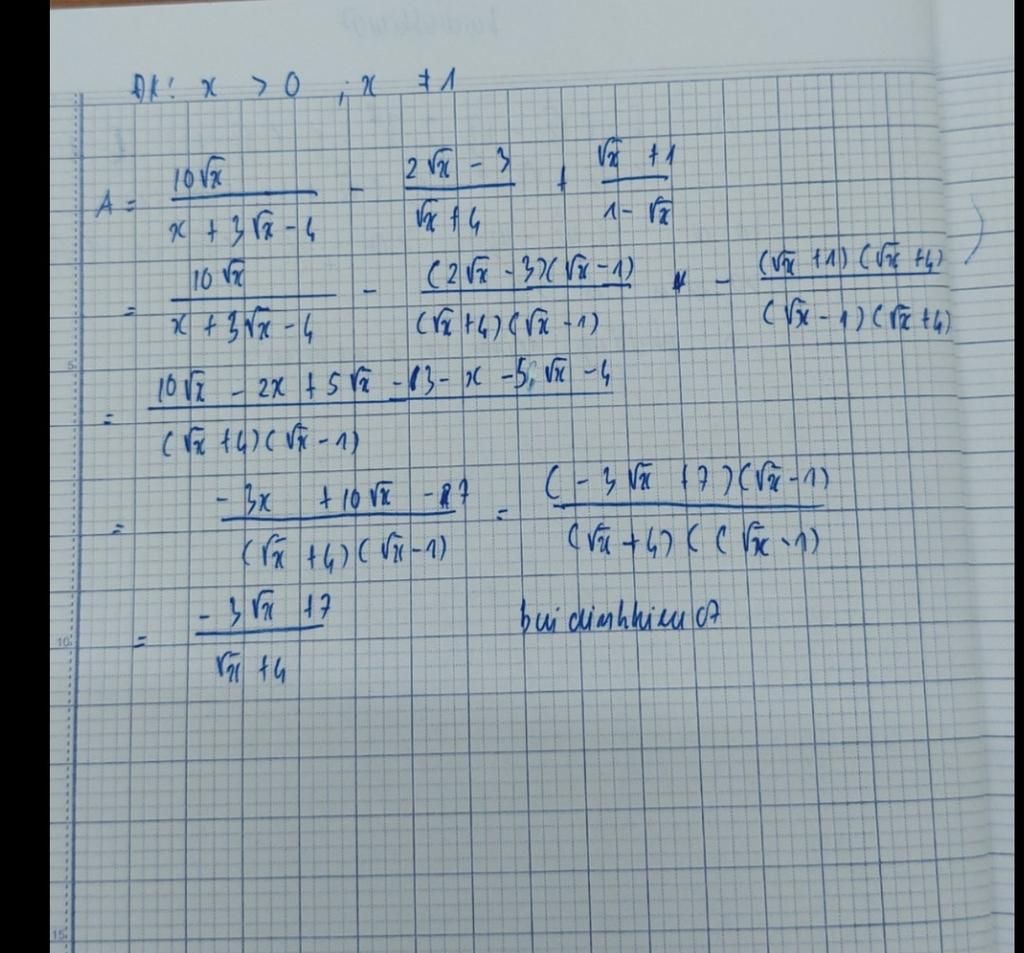 ĐK: x > 0 ; x ≠ 1
A = 10√x / (x + 3√x - 4) - (2√x - 3) / (√x + 4) + (√x + 1) / (1 - √x)
= 10√x / (x + 3√x - 4) - (2√x - 3)(√x - 1) / (√x + 4)(√x - 1) - (√x + 1)(√x + 4) / (√x - 1)(√x + 4)
= (10√x - 2x + 5√x - 3 - x - 5√x - 4) / (√x + 4)(√x - 1)
= (-3x + 10√x - 7) / (√x + 4)(√x - 1) = (-3√x + 7)(√x - 1) / (√x + 4)((√x - 1)
= (-3√x + 7) / (√x + 4) buidinhhieu07
5
10
15